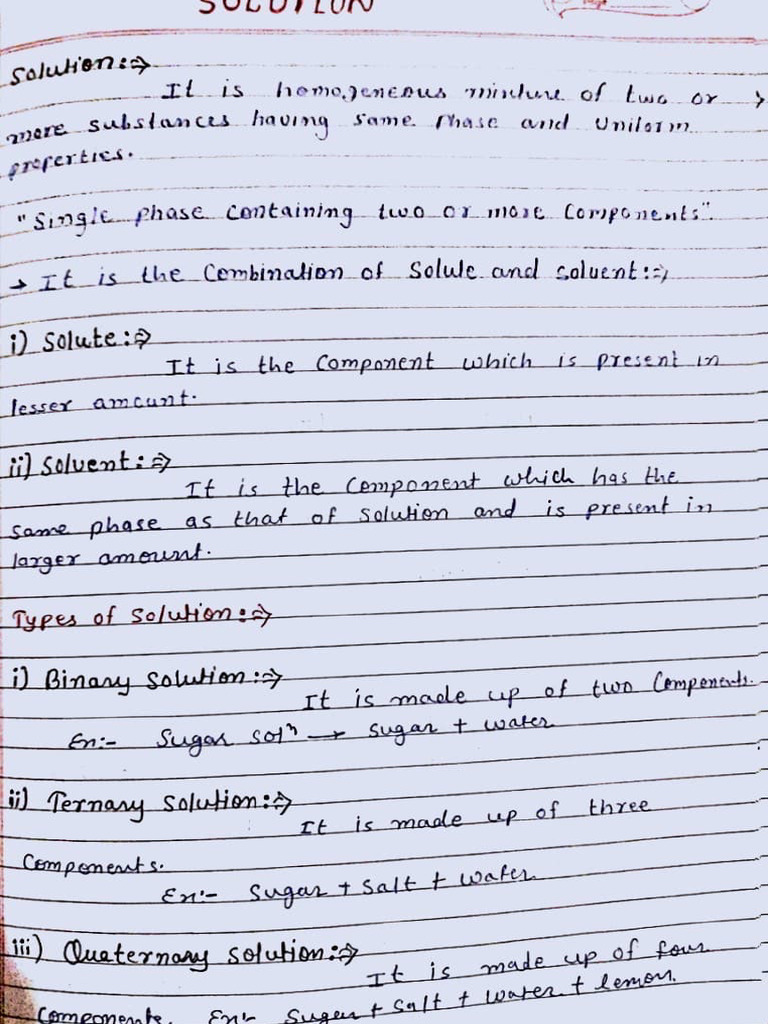 SOLUTION
Solution:⇒
It is homogeneous mixture of two or
more substances having same phase and uniform
properties.
"Single phase containing two or more Components".
→ It is the Combination of Solute and solvent:⇒
i) Solute:⇒
It is the Component which is present in
lesser amount.
ii) Solvent:⇒
It is the Component which has the
same phase as that of solution and is present in
larger amount.
Types of Solution:⇒
i) Binary Solution:⇒
It is made up of two Components.
Ex:- Sugar solⁿ → sugar + water
ii) Ternary Solution:⇒
It is made up of three
Components.
Ex:- Sugar + Salt + water
iii) Quaternary Solution:⇒
It is made up of four
Components. Ex:- Sugar + Salt + water + lemon.